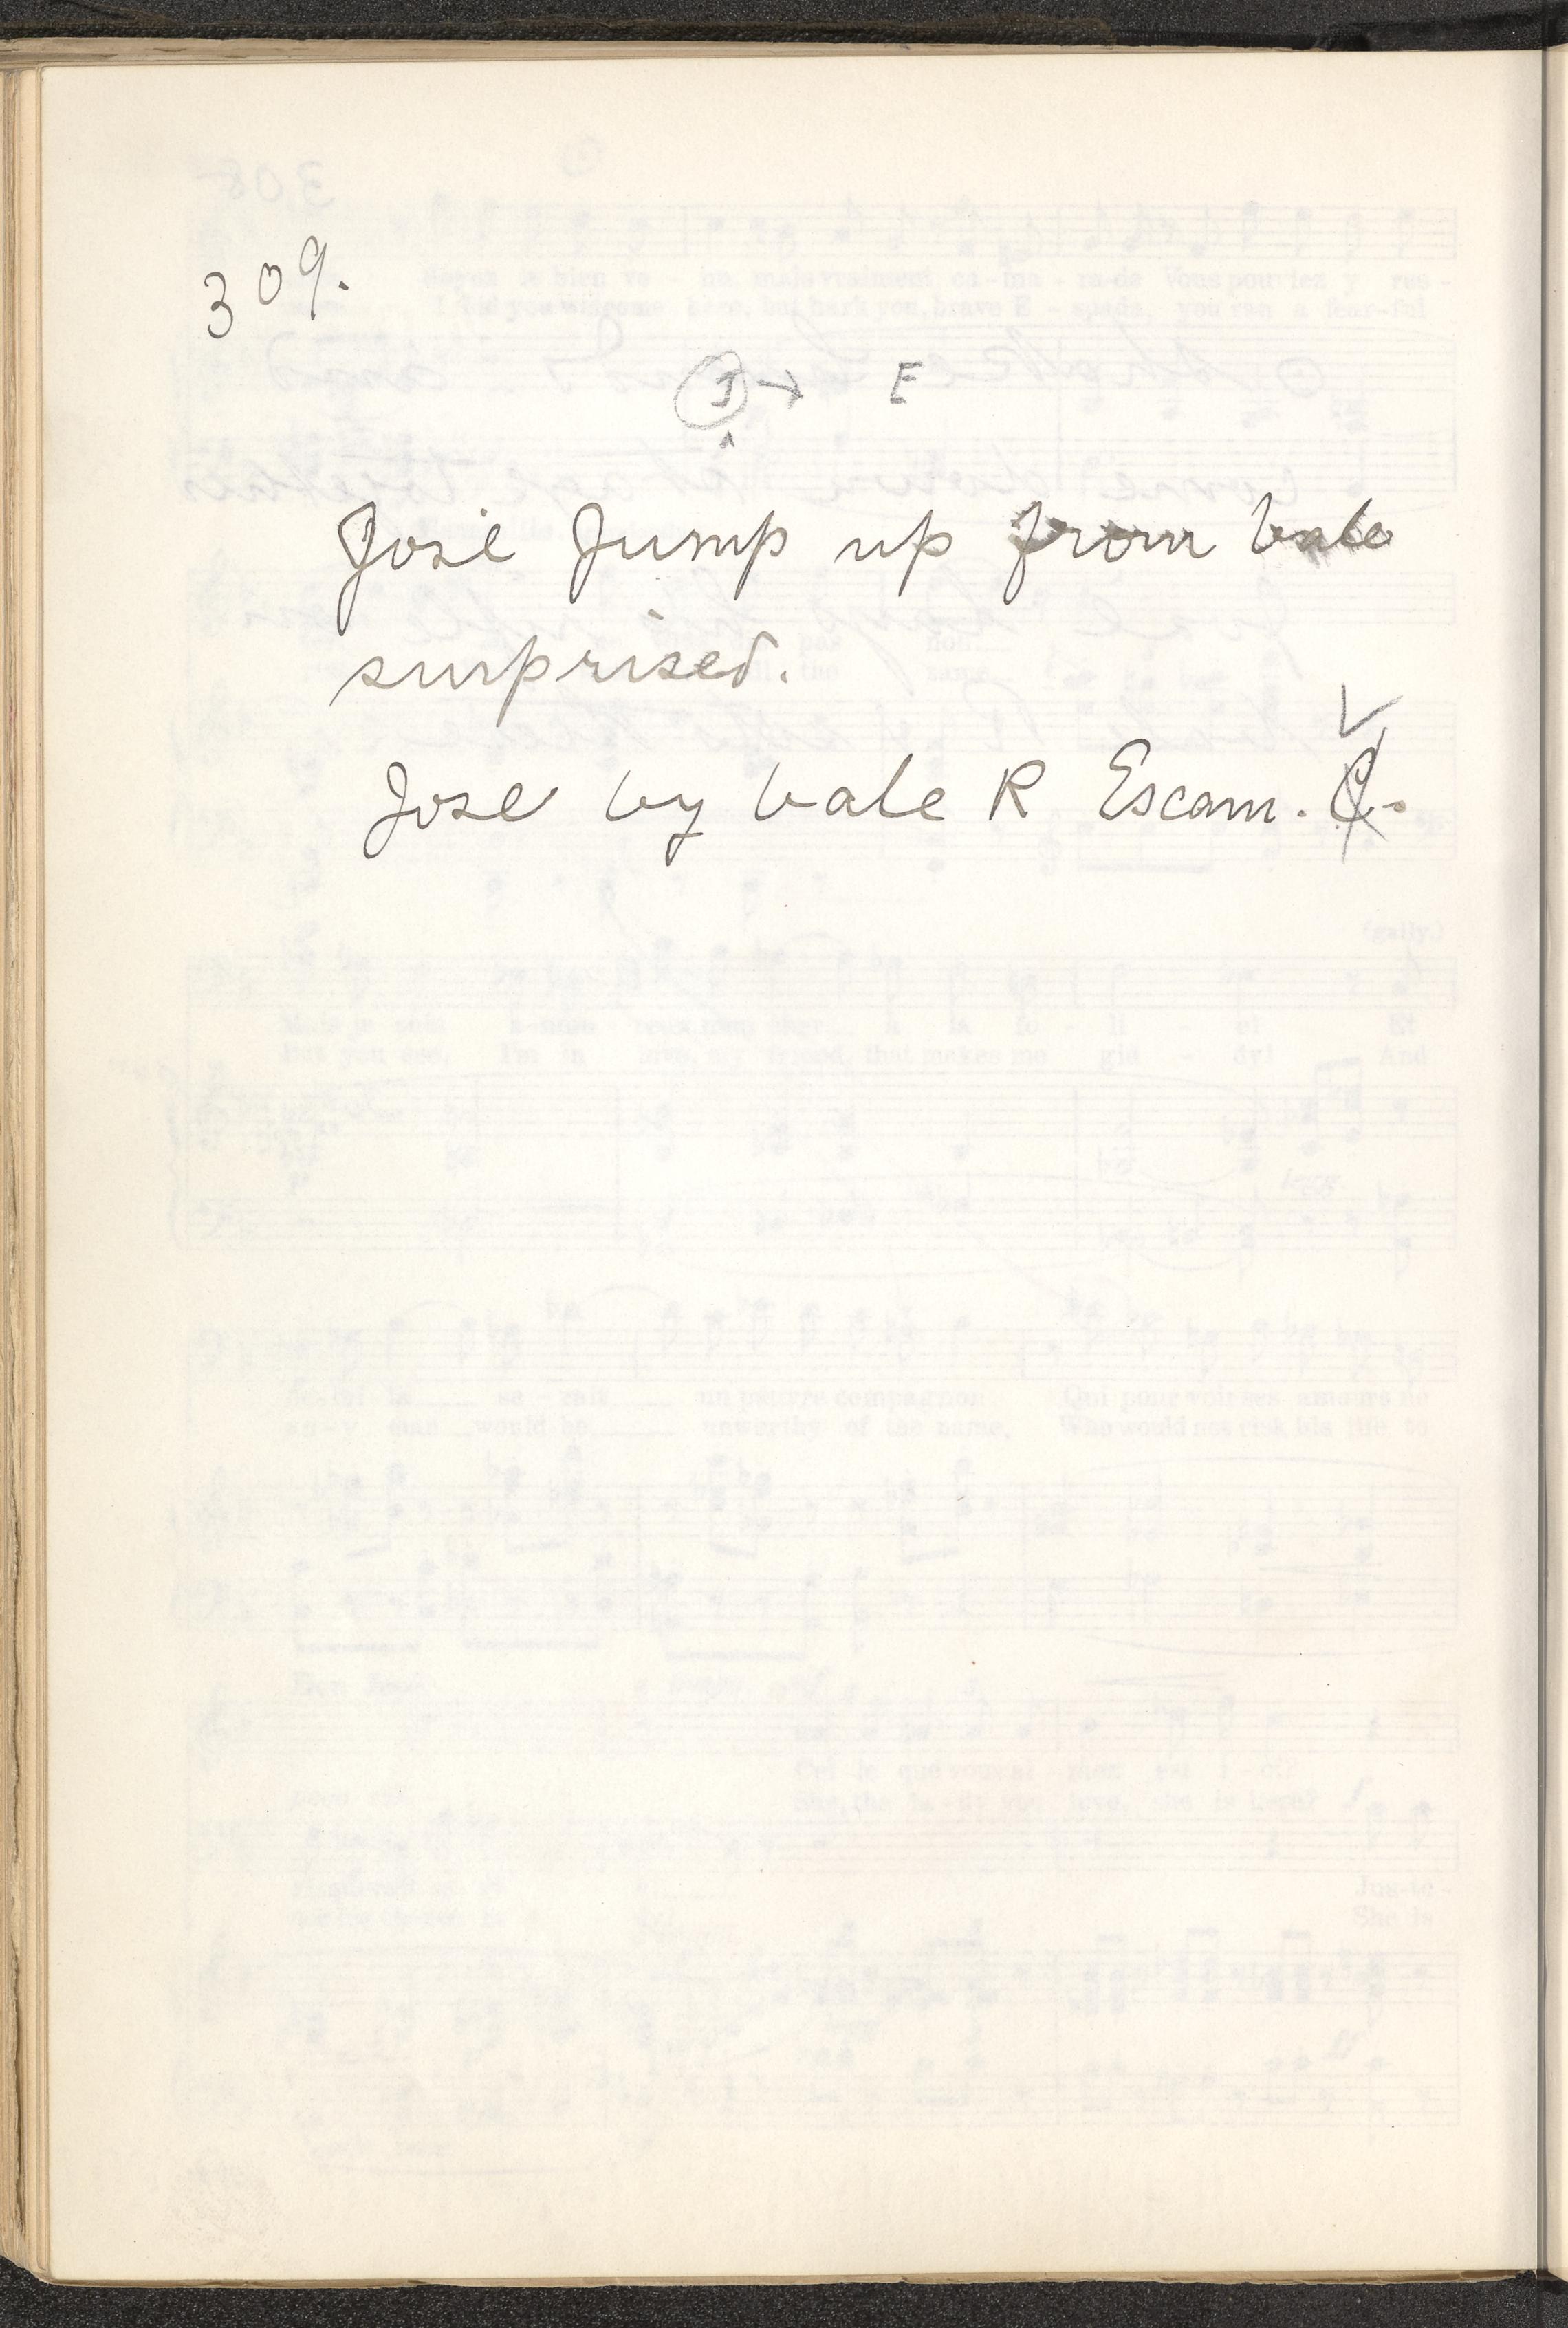 309.
J → E
José Jump up from bale
surprised.
Jose by bale R Escam. C.